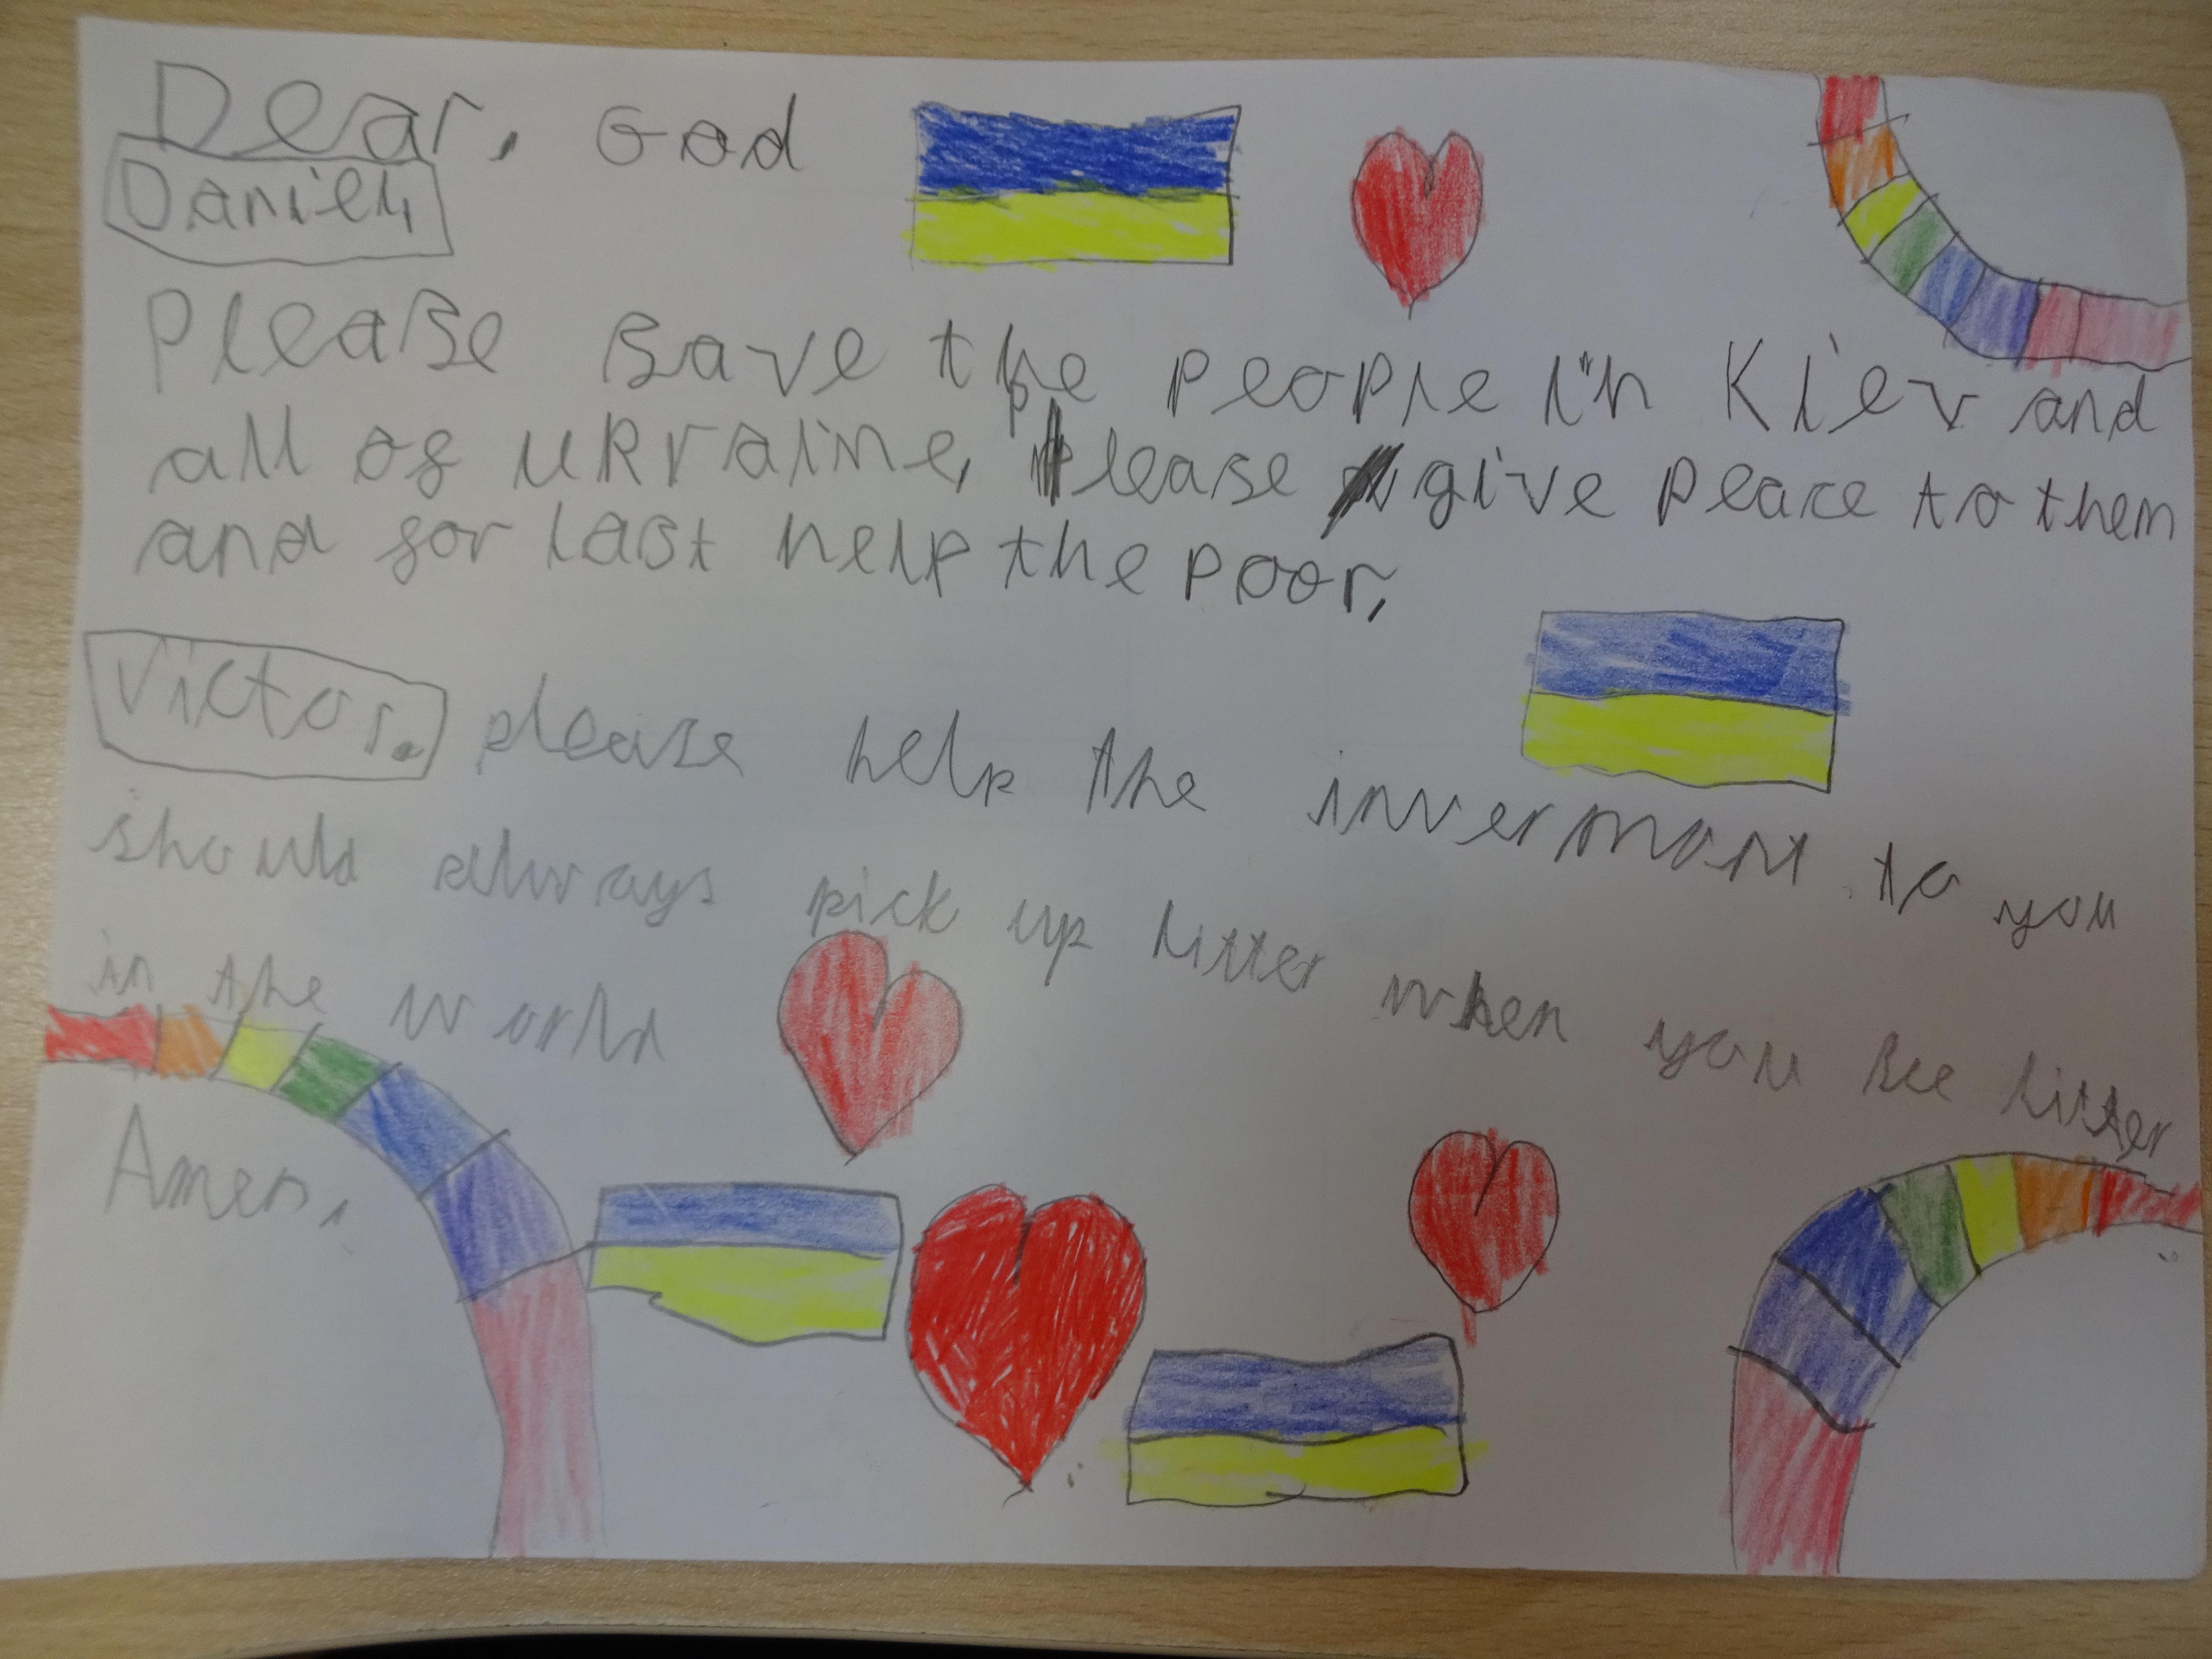 Dear, God
Daniel,
Please save the people in Kiev and
all of ukraine, please give peace to them
and for last help the poor,
Victor. please help the invermant to you
should always pick up litter when you see litter
in the world
Amen,